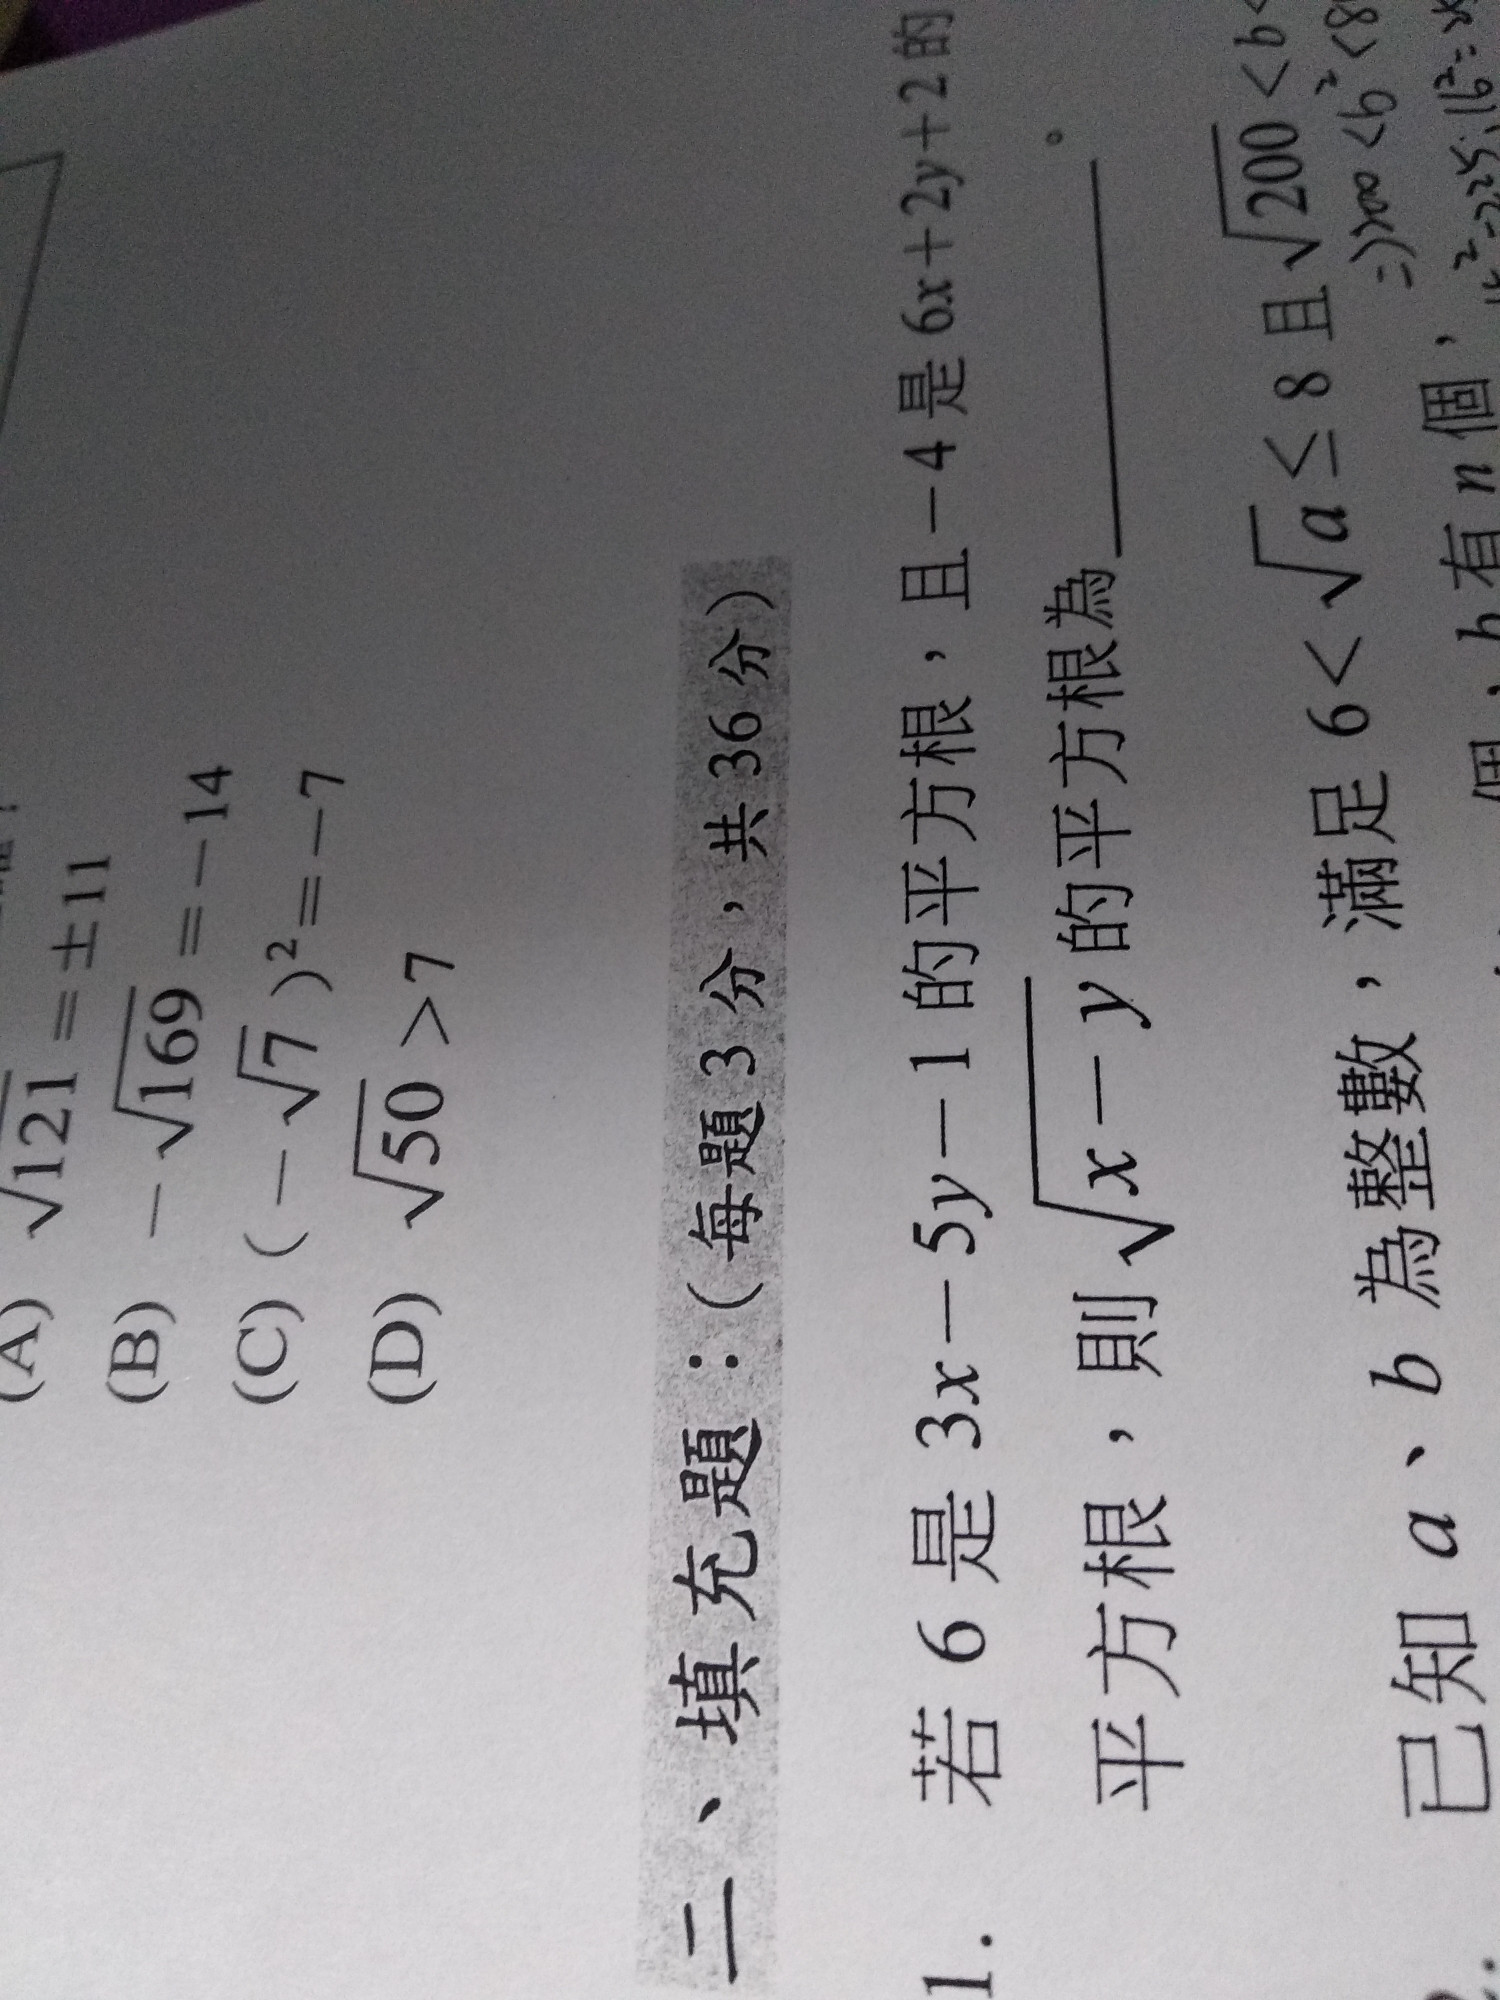 (A) √121＝±11
(B) －√169＝－14
(C) (－√7)²＝－7
(D) √50＞7
二、填充題：（每題3分，共36分）
1. 若 6 是 3x－5y－1 的平方根，且－4 是 6x＋2y＋2 的
平方根，則√x－y 的平方根為＿＿＿＿。
已知 a、b 為整數，滿足 6＜√a≤8 且√200＜b＜
⇒200<b²<8
有 n 個，